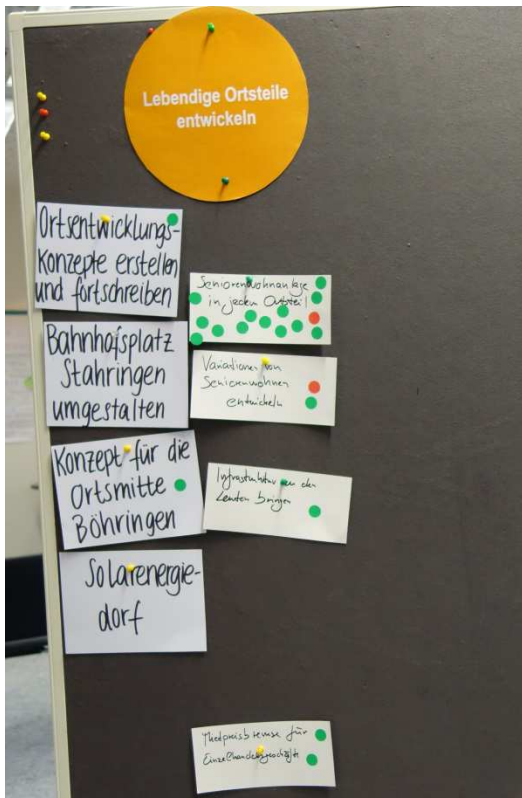 Lebendige Ortsteile
entwickeln
Ortsentwicklungs-
Konzepte erstellen
und fortschreiben
Bahnhofsplatz
Stahringen
umgestalten
Konzept für die
Ortsmitte
Böhringen
Solarenergie-
dorf
Seniorenwohnanlage
in jedem Ortsteil
Variationen von
Seniorenwohnen
entwickeln
Infrastruktur zu den
Leuten bringen
Mietpreisbremse für
Einzelhandelsgeschäfte